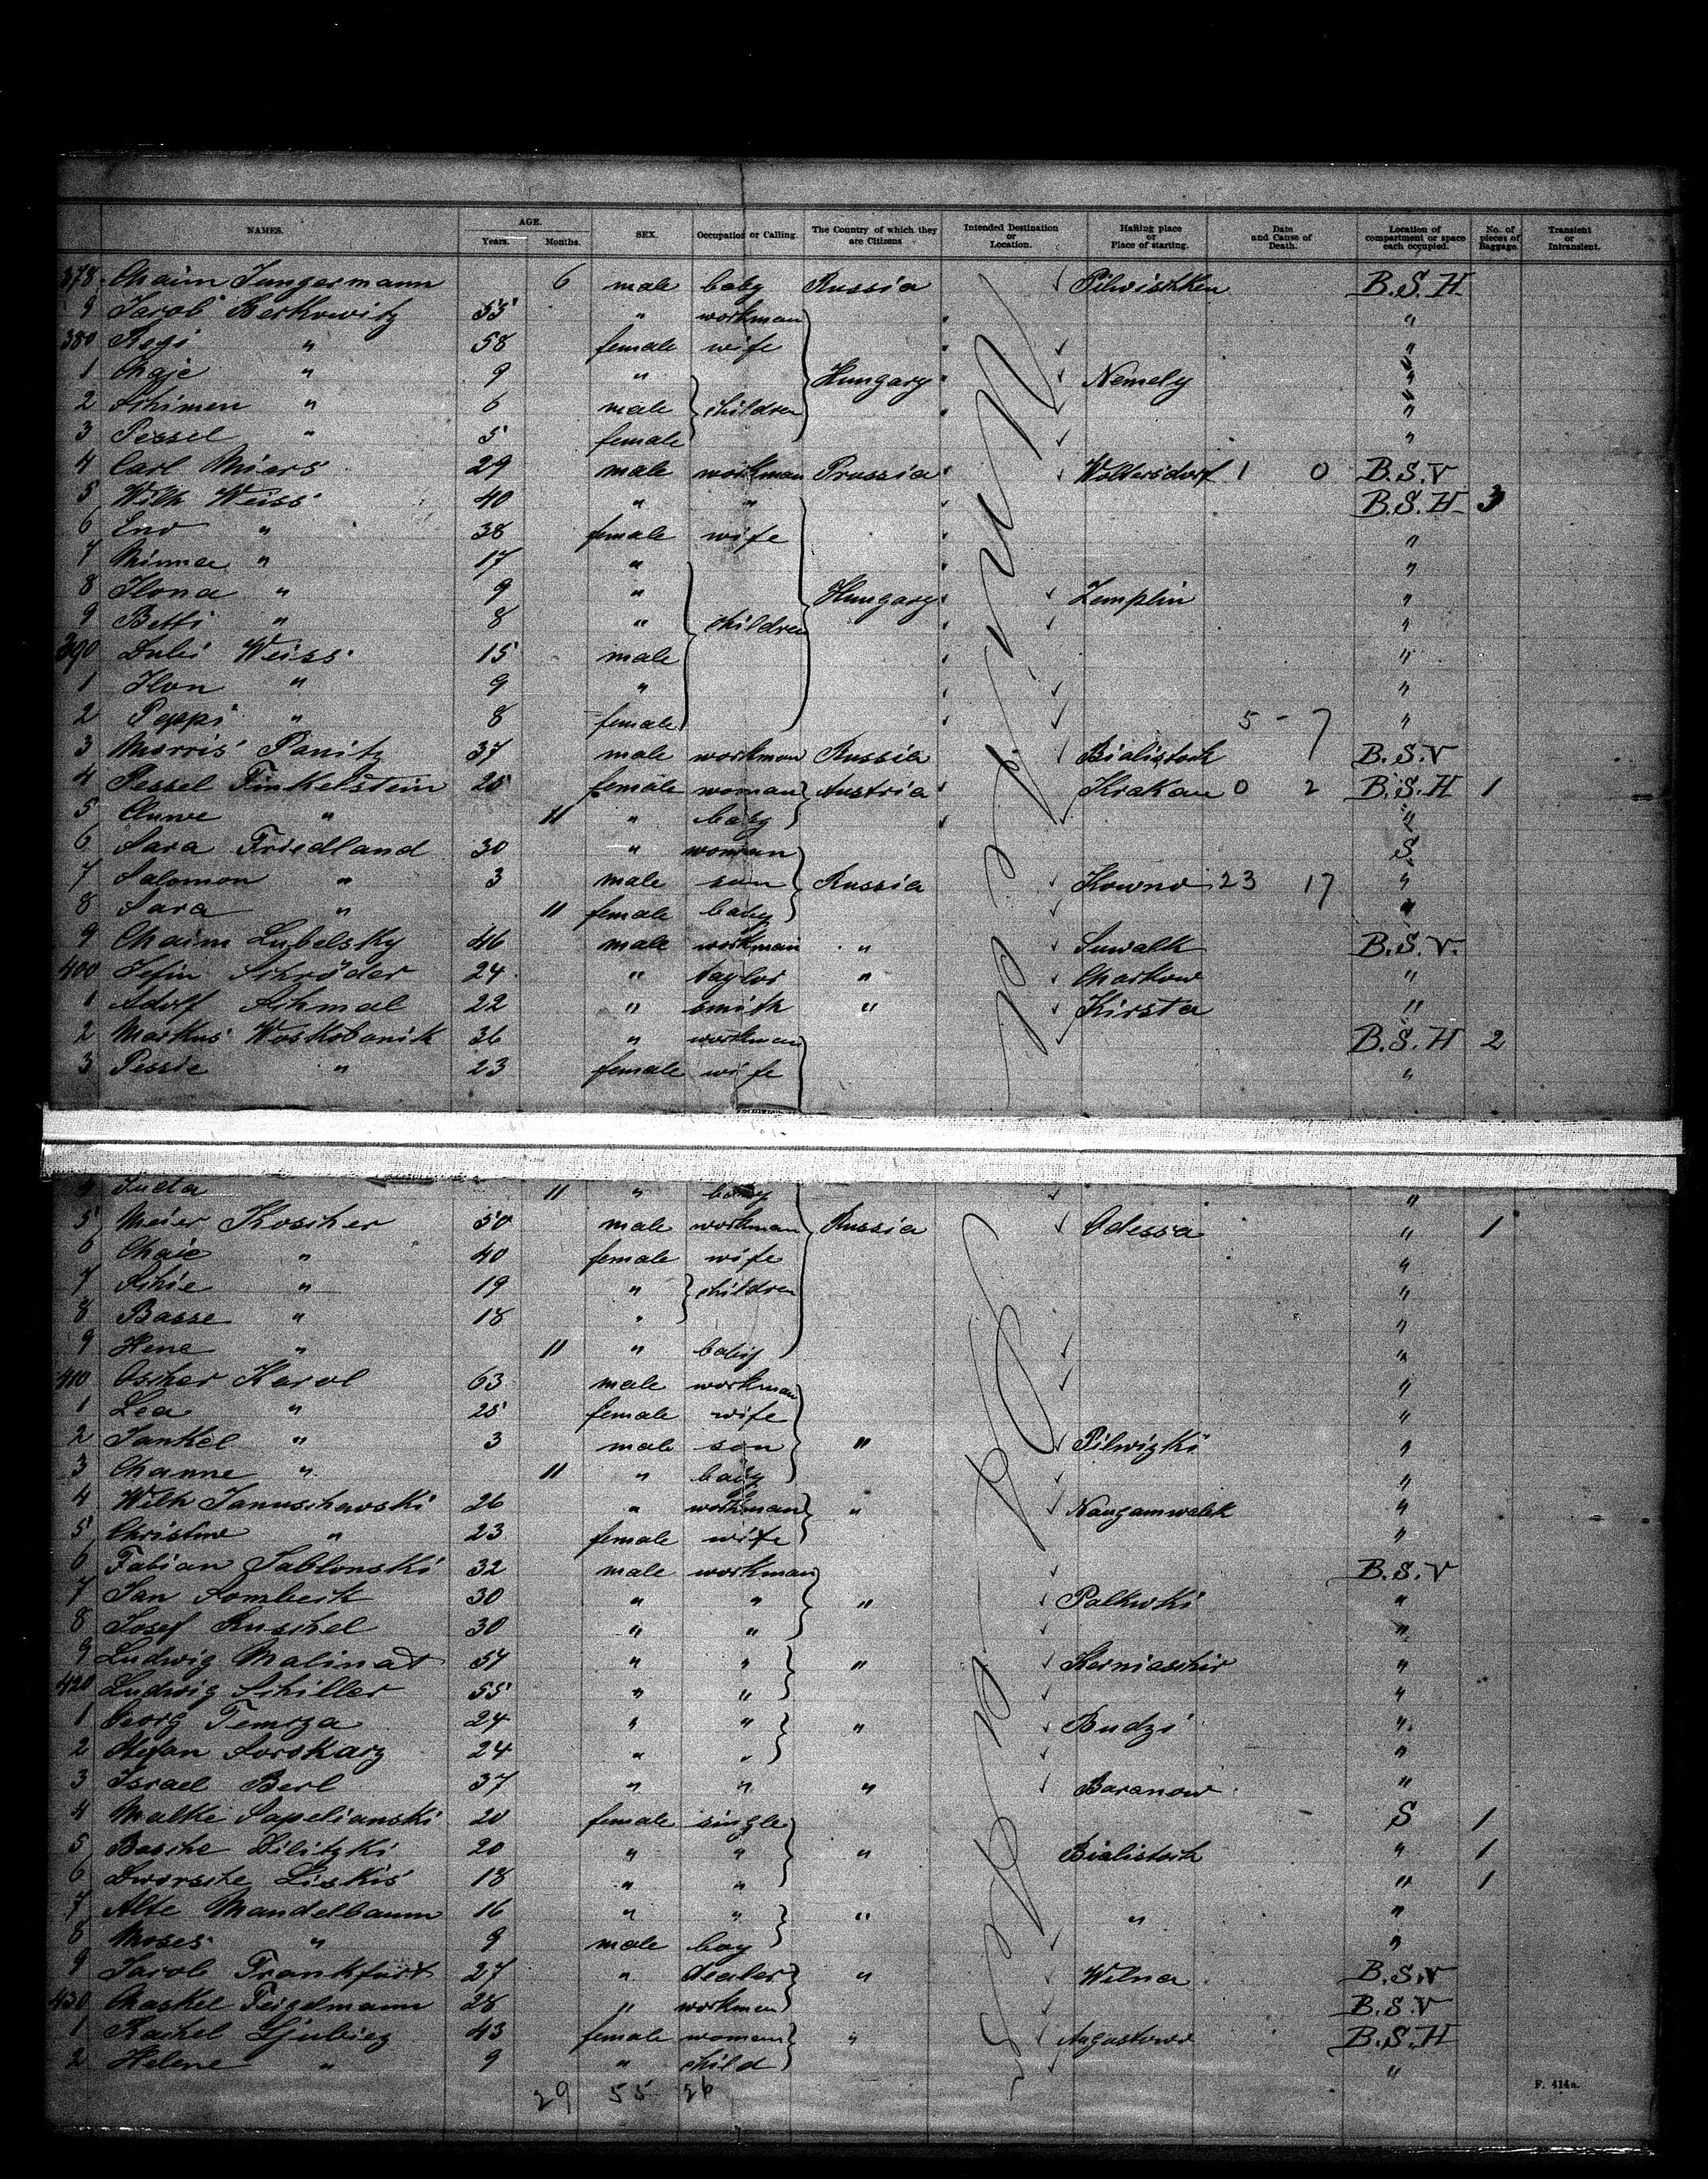 NAMES. AGE. Years. Months. SEX. Occupation or Calling. The Country of which they are Citizens Intended Destination or Location. Halting place or Place of starting. Date and Cause of Death. Location of compartment or space each occupied. No. of pieces of Baggage. Transient or Intransient.
378 Chaim Jungermann 6 male baby Russia Pilwischken B.S.H
9 Jacob Berkowitz 55 " workman "
380 Regi " 58 female wife "
1 Chaje " 9 " Hungary Nemely "
2 Schimen " 6 male children "
3 Pessel " 5 female "
4 Carl Miers 29 male workman Prussia Woltersdorf 1 0 B.S.V
5 Wilh Weiss 40 " " B.S.H 3
6 " 38 female wife "
7 Minna " 17 " "
8 Ilona " 9 " Hungary Zemplin "
9 Betti " 8 " children "
390 Weiss 15 male "
1 Ilon " 9 " "
2 Peppi " 8 female 5 - 7 "
3 Morris Panitz 37 male workman Russia Bialistock B.S.V
4 Pessel Finkelstein 25 female woman Austria Krakau 0 2 B.S.H 1
5 " 11 " baby "
6 Sara Friedland 30 " woman S
7 Salomon " 3 male son Russia Kowno 23 17 "
8 Sara " 11 female baby "
9 Chaim Lubelsky 46 male workman " Suwalk B.S.V.
400 Schröder 24 " taylor " Charkow "
1 Adolf Schmal 22 " smith " Kirsta "
2 Markus Woskobonik 36 " workman B.S.H 2
3 Pessie " 23 female wife "
4 11 " baby "
5 Meier Koscher 50 male workman Russia Odessa " 1
6 Chaie " 40 female wife "
7 Schie " 19 " children "
8 Basse " 18 " "
9 Hene " 11 " baby "
410 Oscher Karol 63 male workman "
1 Lea " 25 female wife "
2 Jankel " 3 male son " Pilwizki "
3 Channe " 11 " baby "
4 Wilh Januschewski 26 " workman " "
5 " 23 female wife "
6 Fabian Jablonski 32 male workman B.S.V
7 Jan Sombeck 30 " " " "
8 Josef Ruschel 30 " " "
9 Ludwig Malinat 54 " " " "
420 Ludwig Schiller 55 " " "
1 Georg Temrza 24 " " " Budzi "
2 Stefan 24 " " "
3 Israel Berl 37 " " " Baranow "
4 Malke Sapelianski 20 female single S 1
5 Basche Dilitzki 20 " " " Bialistock " 1
6 Dworsche Liskis 18 " " " 1
7 Alte Mandelbaum 16 " " " " "
8 Moses " 9 male boy "
9 Jacob Frankfurt 27 " dealer " Wilna B.S.V
430 Chaskel Feigelmann 28 " workman B.S.V
1 Rachel 43 female woman " Augustowo B.S.H
2 Helene " 9 " child "
29 55 26
F. 414a.